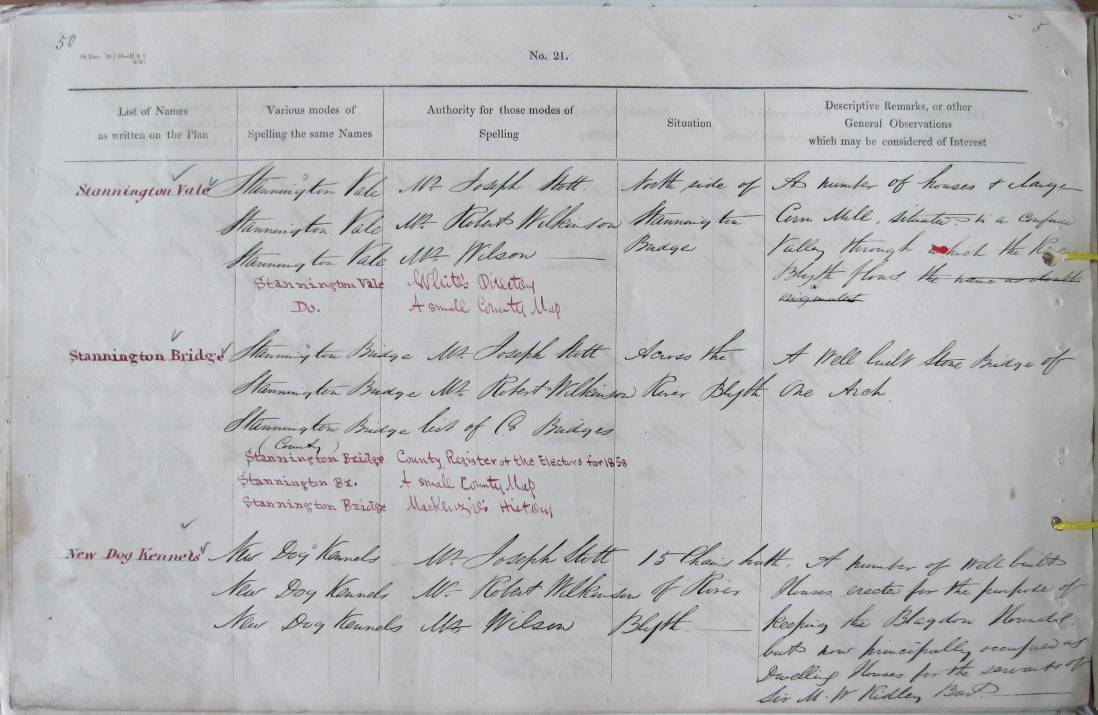 50
5
No. 21.
List of Names
as written on the Plan
Various modes of
Spelling the same Names
Authority for those modes of
Spelling
Situation
Descriptive Remarks, or other
General Observations
which may be considered of Interest
Stannington Vale
Stannington Vale
Stannington Vale
Stannington Vale
Stannington Vale
Do.
Mr. Joseph Stott.
Mr. Robert Wilkinson
Mr. Wilson
White's Directory
A small County Map
North side of
Stannington
Bridge
A number of houses & large
Corn Mill, situated in a
Valley through which the
Blyth flows the name as
originates
Stannington Bridge
Stannington Bridge
Stannington Bridge
Stannington Bridge
(County)
Stannington Bridge
Stannington Br.
Stannington Bridge
Mr. Joseph Stott
Mr. Robert Wilkinson
list of Co Bridges
County Register of the Electors for 1858
A small County Map
Mackenzie's History
Across the
River Blyth
A Well built Stone Bridge of
One Arch.
New Dog Kennels
New Dog Kennels
New Dog Kennels
New Dog Kennels
Mr. Joseph Stott
Mr. Robert Wilkinson
Mr. Wilson
15 Chains
of River
Blyth.
A number of Well built
Houses erected for the purpose of
keeping the Blagdon Hounds.
but now principally occupied as
Dwelling Houses for the servants of
Sir M. W Ridley Bart.